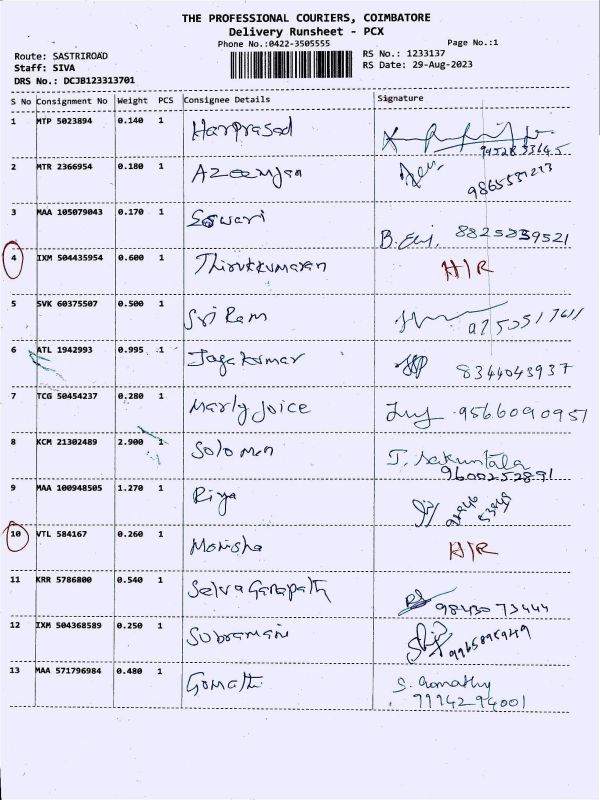 THE PROFESSIONAL COURIERS, COIMBATORE
Delivery Runsheet - PCX
Phone No.:0422-3505555
Page No.:1
Route: SASTRIROAD
RS No.: 1233137
Staff: SIVA
RS Date: 29-Aug-2023
DRS No.: DCJB123313701
S No Consignment No Weight PCS Consignee Details Signature
1 MTP 5023894 0.140 1 Harprasad
2 MTR 2366954 0.180 1 Azeemjan 9865531213
3 MAA 105079043 0.170 1 Eswari 8825259521
4 IXM 504435954 0.600 1 Thirukkumaran H/R
5 SVK 60375507 0.500 1 Sri Ram
6 ATL 1942993 0.995 1 Jaga kumar 8344043937
7 TCG 50454237 0.280 1 Marly Joice 9566090951
8 KCM 21302489 2.900 1 Solomon J. Sakuntala
9600252891
9 MAA 100948505 1.270 1 Riya
10 VTL 584167 0.260 1 Monisha H/R
11 KRR 5786800 0.540 1 Selva Ganapathi 9843073444
12 IXM 504368589 0.250 1 Subramani 9965895949
13 MAA 571796984 0.480 1 Gomathi S. Gomathy
9994294001